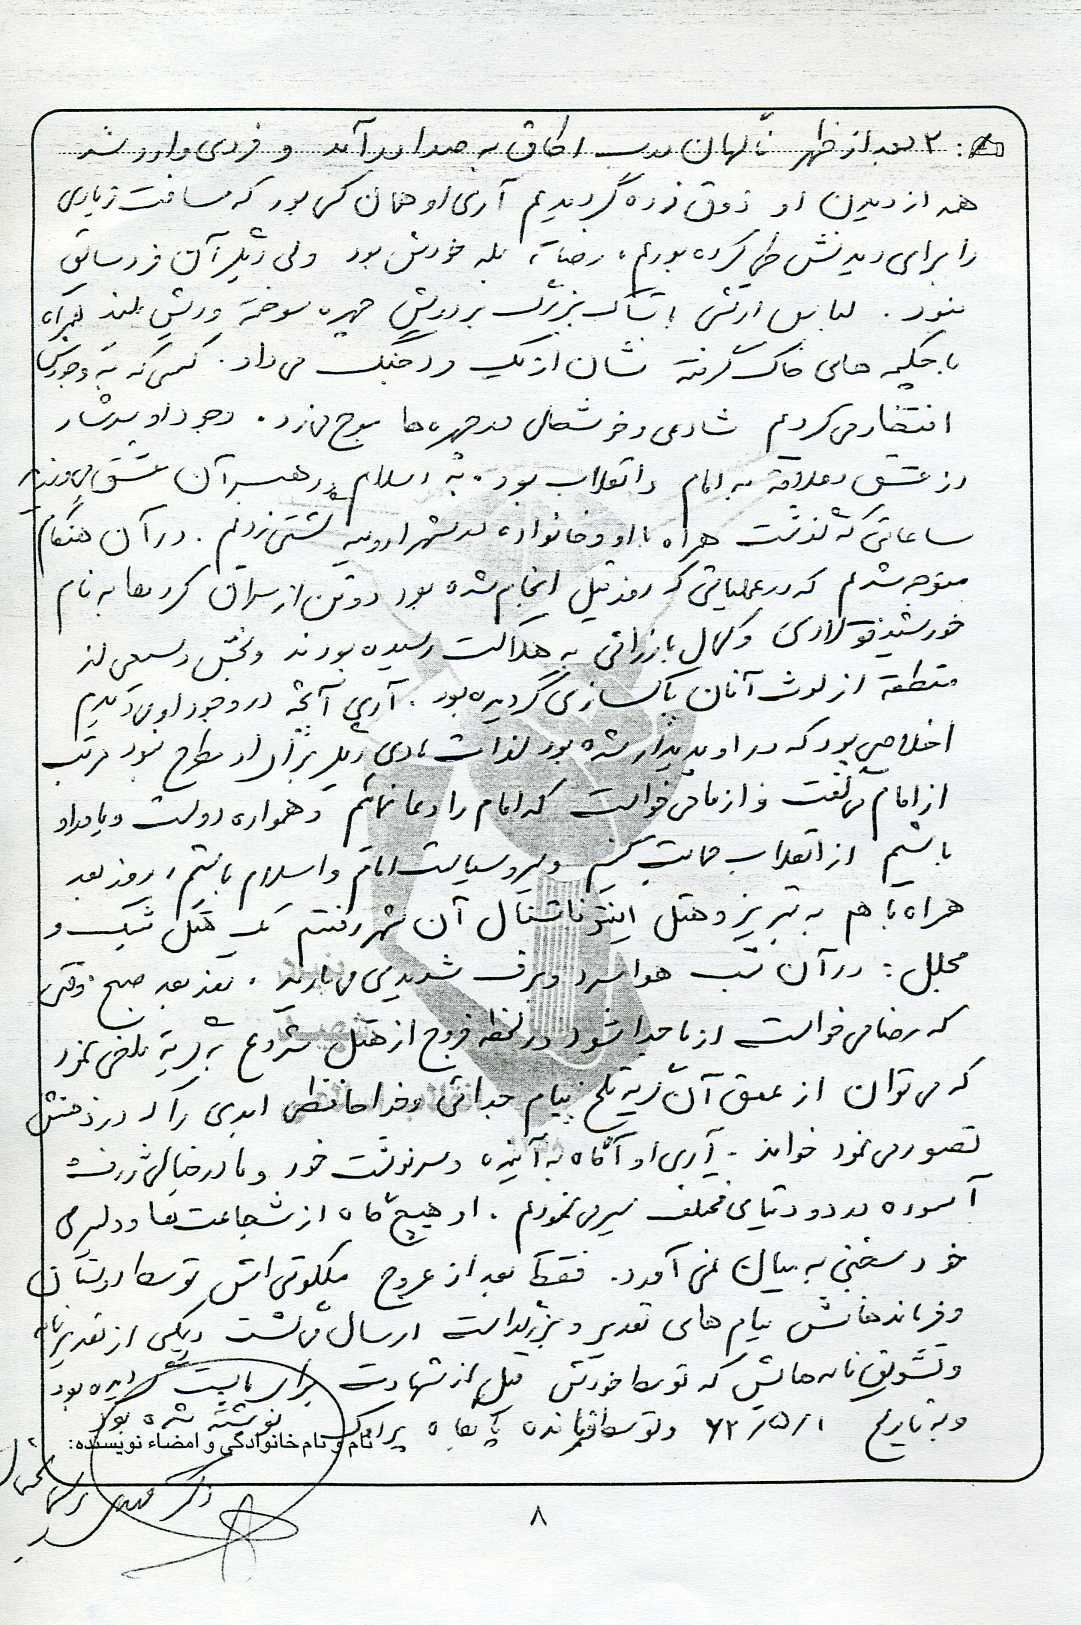 ۲ بعد از ظهر ناگهان درب اطاق به صدا درآمد و فردی وارد شد
همه از دیدن او ذوق زده گردیدیم آری او همان کسی بود که مسافت زیادی
را برای دیدنش طی کرده بودیم، رضا؟ بله خودش بود ولی دیگر آن فرد سابق
نبود. لباس ارتشی اتاک بزرگ بر دوش چهره سوخته و ریش بلند همراه
با چکمه های خاک گرفته نشان از یک مرد جنگ می داد. کسی که به وجودش
افتخار می کردیم شادی و خوشحالی در چهره ها موج میزد. وجود او سرشار
از عشق و علاقه به امام و انقلاب بود. به اسلام و رهبر آن عشق می ورزید
ساعاتی که گذشت همراه با او و خانواده در شهر ارومیه گشتی زدیم. در آن هنگام
متوجه شدیم که در عملیاتی که روز قبل انجام شده بود دو تن از سران کردها به نام
خورشید قولاری و کمال بارزانی به هلاکت رسیده بودند و بخش وسیعی از
منطقه از لوث آنان پاکسازی گردیده بود. آری آنچه در وجود او می دیدیم
اخلاصی بود که در او پدیدار شده بود لذات مادی دیگر برای او مطرح نبود مرتب
از امام می گفت و از ما می خواست که امام را دعا نمائیم و همواره دولت و
باشیم از انقلاب حمایت کنیم و پیرو سیاست امام و اسلام باشیم، روز بعد
همراه با هم به تبریز و هتل اینترناشنال آن شهر رفتیم یک هتل شیک و
مجلل: در آن شب هوا سرد و برف شدیدی می بارید. روز بعد صبح وقتی
که رضا می خواست از ما جدا شود در لحظه خروج از هتل شروع به گریه تلخی نمود
که می توان از عمق آن گریه تلخ پیام جدائی و خداحافظی ابدی را که در ذهنش
تصور می نمود خواند. آری او آگاه به آینده و سرنوشت خود و ما در خیالی ژرف
آسوده در دو دنیای مختلف سیر می نمودیم. او هیچ گاه از شجاعت ها و دلیری
خود سخنی به میان نمی آورد. فقط بعد از عروج ملکوتی اش توسط دوستان
و فرماندهانش پیام های تقدیر و بزرگداشت ارسال می گشت و یکی از تقدیرنامه
و تشویق نامه هایش که توسط خودش قبل از شهادت برای ما پست گردیده بود
و به تاریخ ۶۲/۵/۱ و توسط فرمانده پایگاه
نوشته شده بود
نام و نام خانوادگی و امضاء نویسنده:
دکتر مهدی
۸